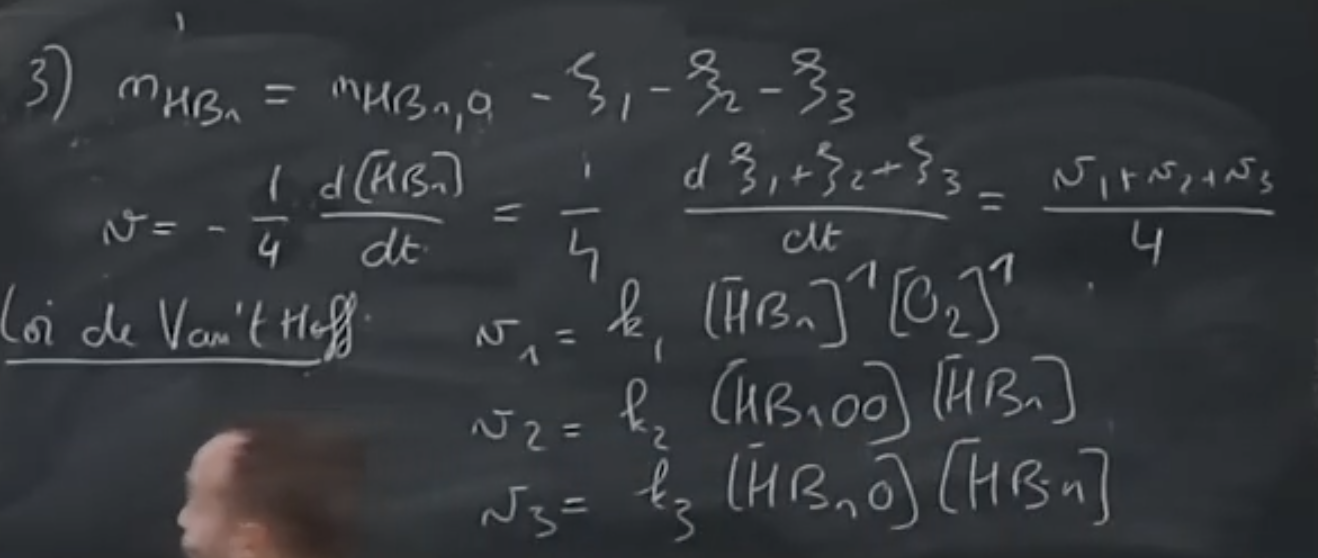 3) n_HBr = n_HBr,0 - ξ₁ - ξ₂ - ξ₃
v = - 1/4 d[HBr]/dt = 1/4 d ξ₁+ξ₂+ξ₃/dt = v₁+v₂+v₃/4
Loi de Van't Hoff. v₁ = k₁ [HBr]¹ [O₂]¹
v₂ = k₂ [HBrOO] [HBr]
v₃ = k₃ [HBrO] [HBr]